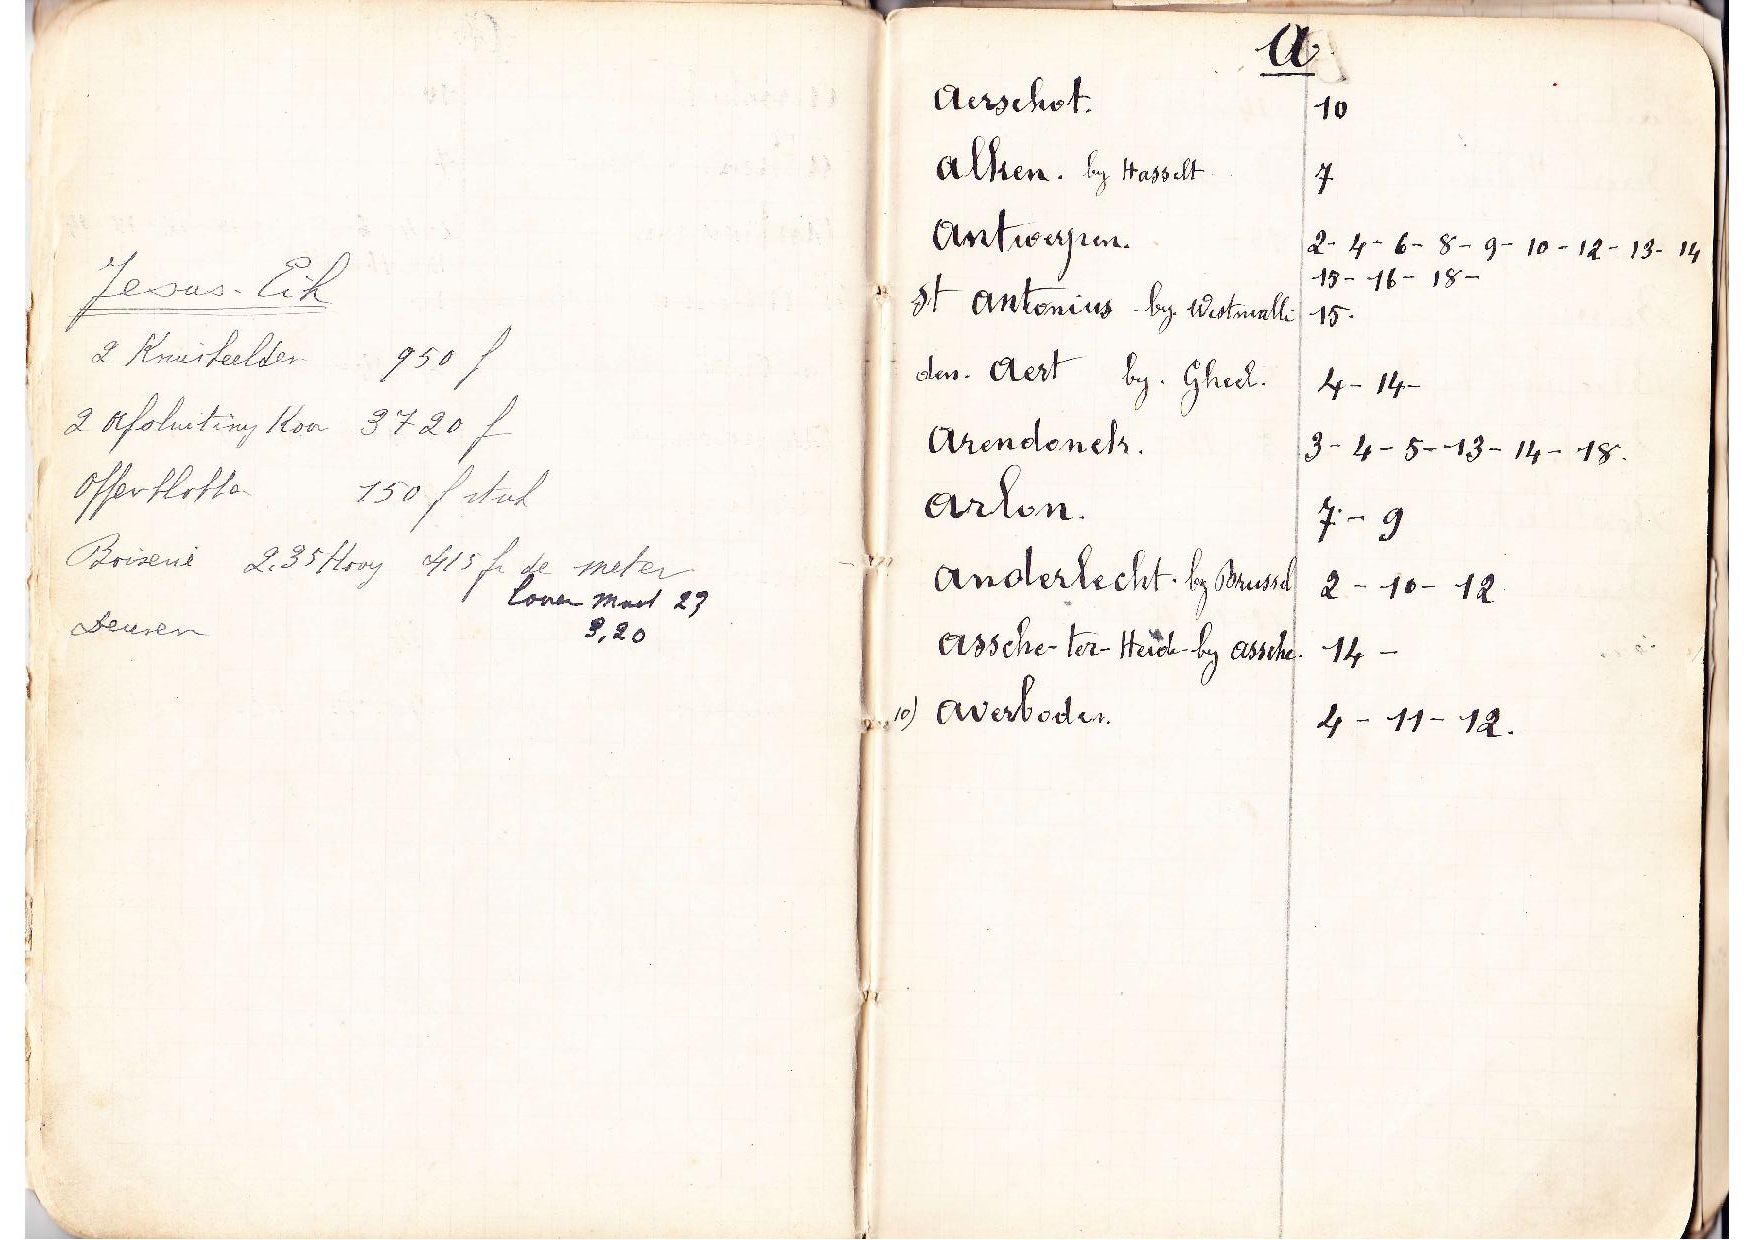 Jesus-Eik
2 Kruisbeelden 950 f
2 Afsluiting Koor 3720 f
Offerblokken 150 f stuk
Boiserie 2,35 Hoog 415 fr de meter
maat 23
Deuren 3,20
a
Aerschot. 10
Alken. by Hasselt 7
Antwerpen. 2- 4- 6- 8- 9- 10- 12- 13- 14
15- 16- 18-
St Antonius by. Westmalle 15.
den. Aert by. Gheel. 4- 14-
Arendonck. 3- 4- 5- 13- 14- 18.
Arlon. 7- 9
Anderlecht. by Brussel 2- 10- 12
Assche-ter-Heide-by assche. 14 -
10) Averboden. 4- 11- 12.